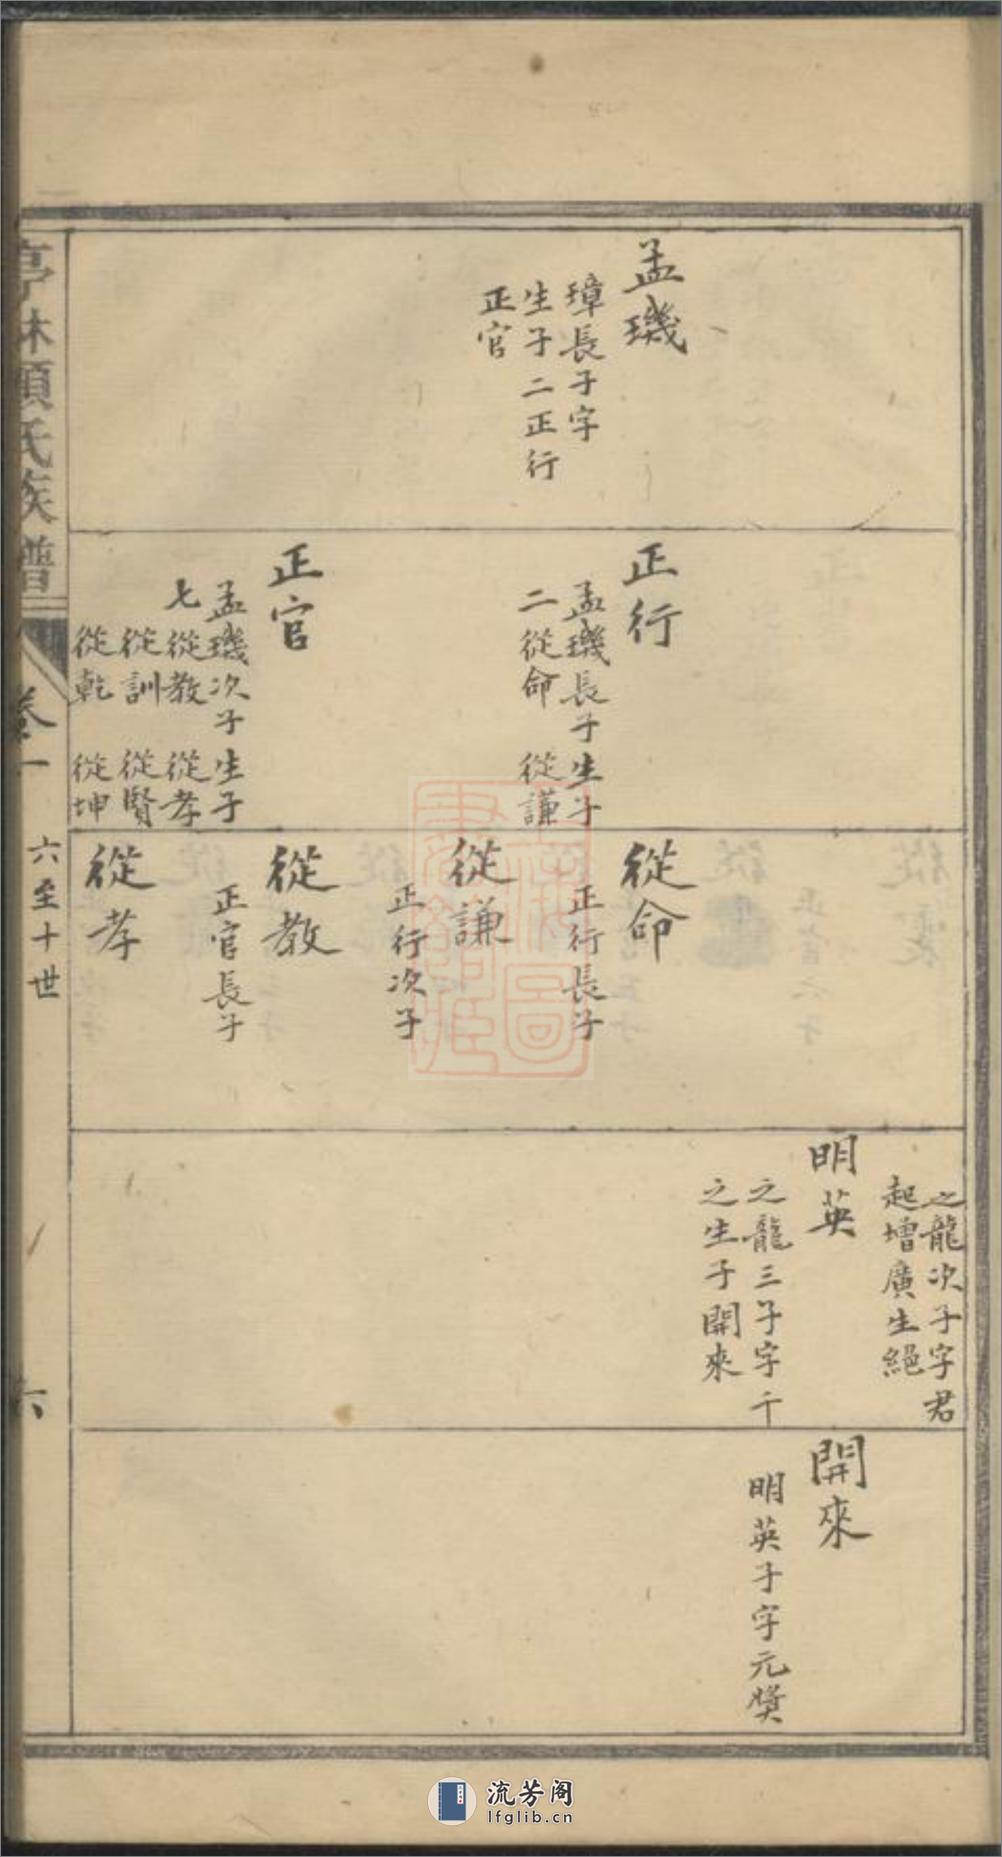 孟璣
璋長子字
生子二正行
正官
正行
孟璣長子生子
二從命 從謙
正官
孟璣次子生子
七從教 從孝
從訓 從賢
從乾 從坤
從命
正行長子
從謙
正行次子
從教
正官長子
從孝
之龍次子字君
起增廣生絕
明英
之龍三子字千
之生子開來
開來
明英子字元獎
亭林顧氏族譜
卷一
六至十世
六
流芳阁
lfglib.cn